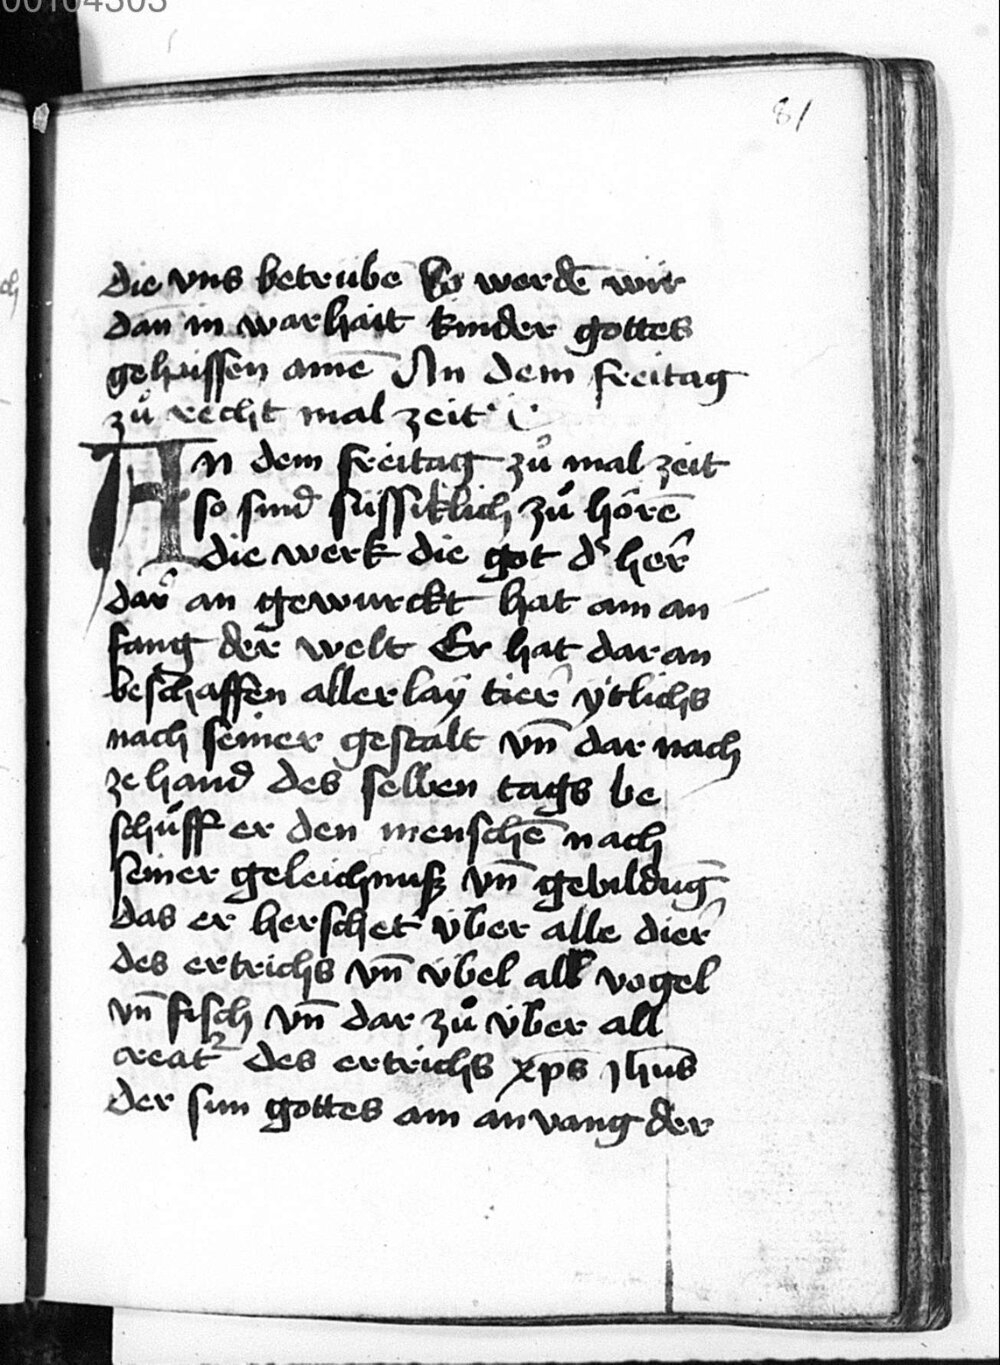 00104303
81
die vns betrübē So werdē wir
dan in warhait kinder gottes
gehaissen amē An dem freitag
zů recht mal zeit
An dem freitag zů mal zeit
so sind süssiklich zů hörē
die werk die got d' her̄
dar an gewurckt hat am an
fang der welt Er hat dar an
beschaffen aller lay tier ÿtlichs
nach seiner gestalt vn̄ dar nach
ze hand des selben tags be
schůff er den menschē nach
seiner geleichnuß vn̄ gebildūg
das er herschet über alle dier
des ertrichs vn̄ übel all vogel
vn̄ fisch vn̄ dar zů über all
creat² des ertrichs xp̄s jhūs
der sun gottes am anvang der